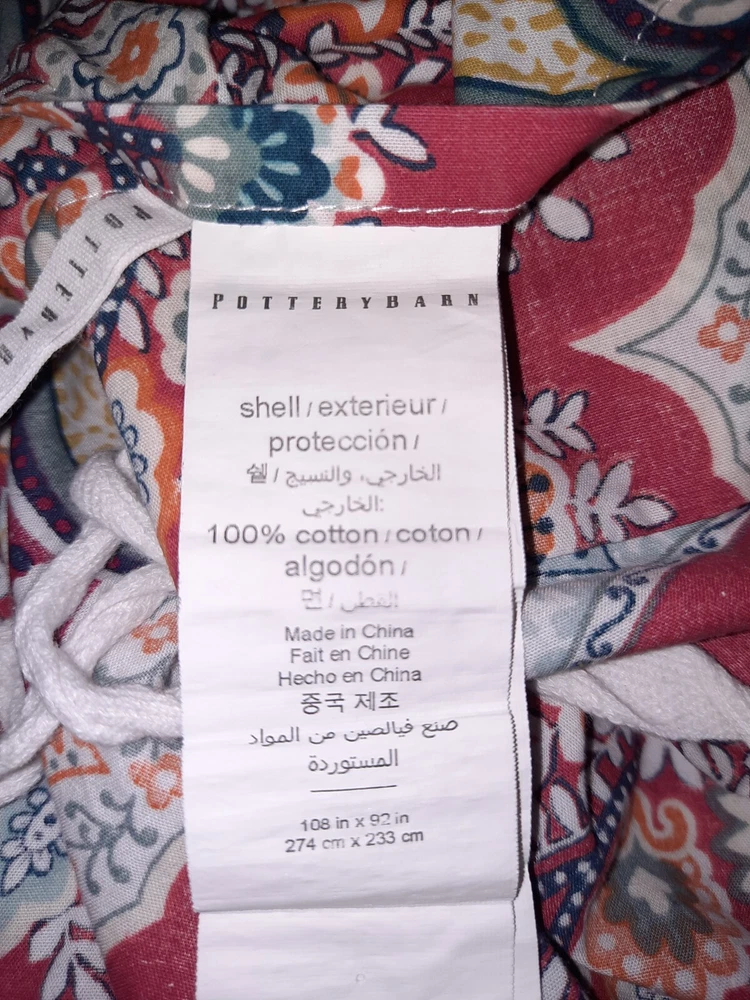 POTTERY B
POTTERYBARN
shell / exterieur /
protección /
쉘 / الخارجي، والنسيج
الخارجي:
100% cotton / coton /
algodón /
면 / القطن
Made in China
Fait en Chine
Hecho en China
중국 제조
صنع فيالصين من المواد
المستوردة
108 in x 92 in
274 cm x 233 cm